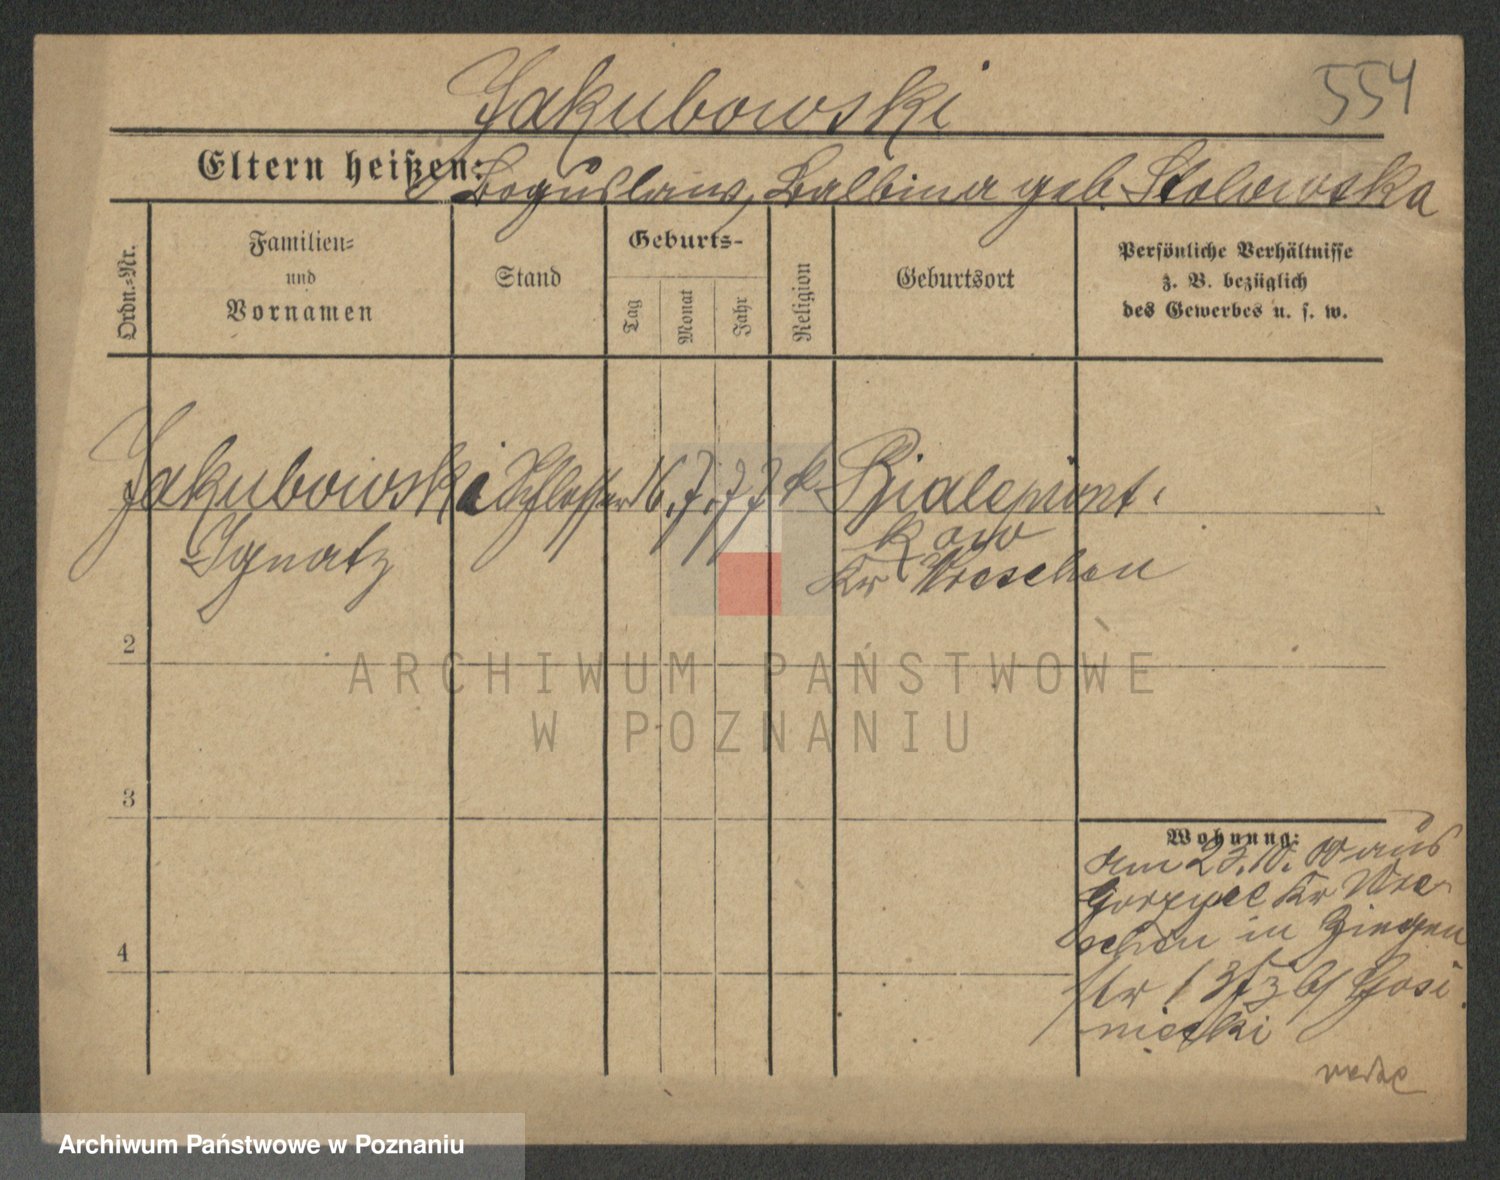 554
Jakubowski
Eltern heißen: Boguslaw, Balbina geb. Stolowska
Ordn.-Nr.
Familien-
und
Vornamen
Stand
Geburts-
Tag
Monat
Jahr
Religion
Geburtsort
Persönliche Verhältnisse
z. B. bezüglich
des Gewerbes u. s. w.
Jakubowski Schlosser 16. 7. 77 k. Bialepiont-
kowo
Ignatz
Kr Wreschen
2
3
4
Wohnung:
am 23.10.00 aus
Kr Wre-
schen in Ziegen
str
ARCHIWUM PAŃSTWOWE
W POZNANIU
Archiwum Państwowe w Poznaniu